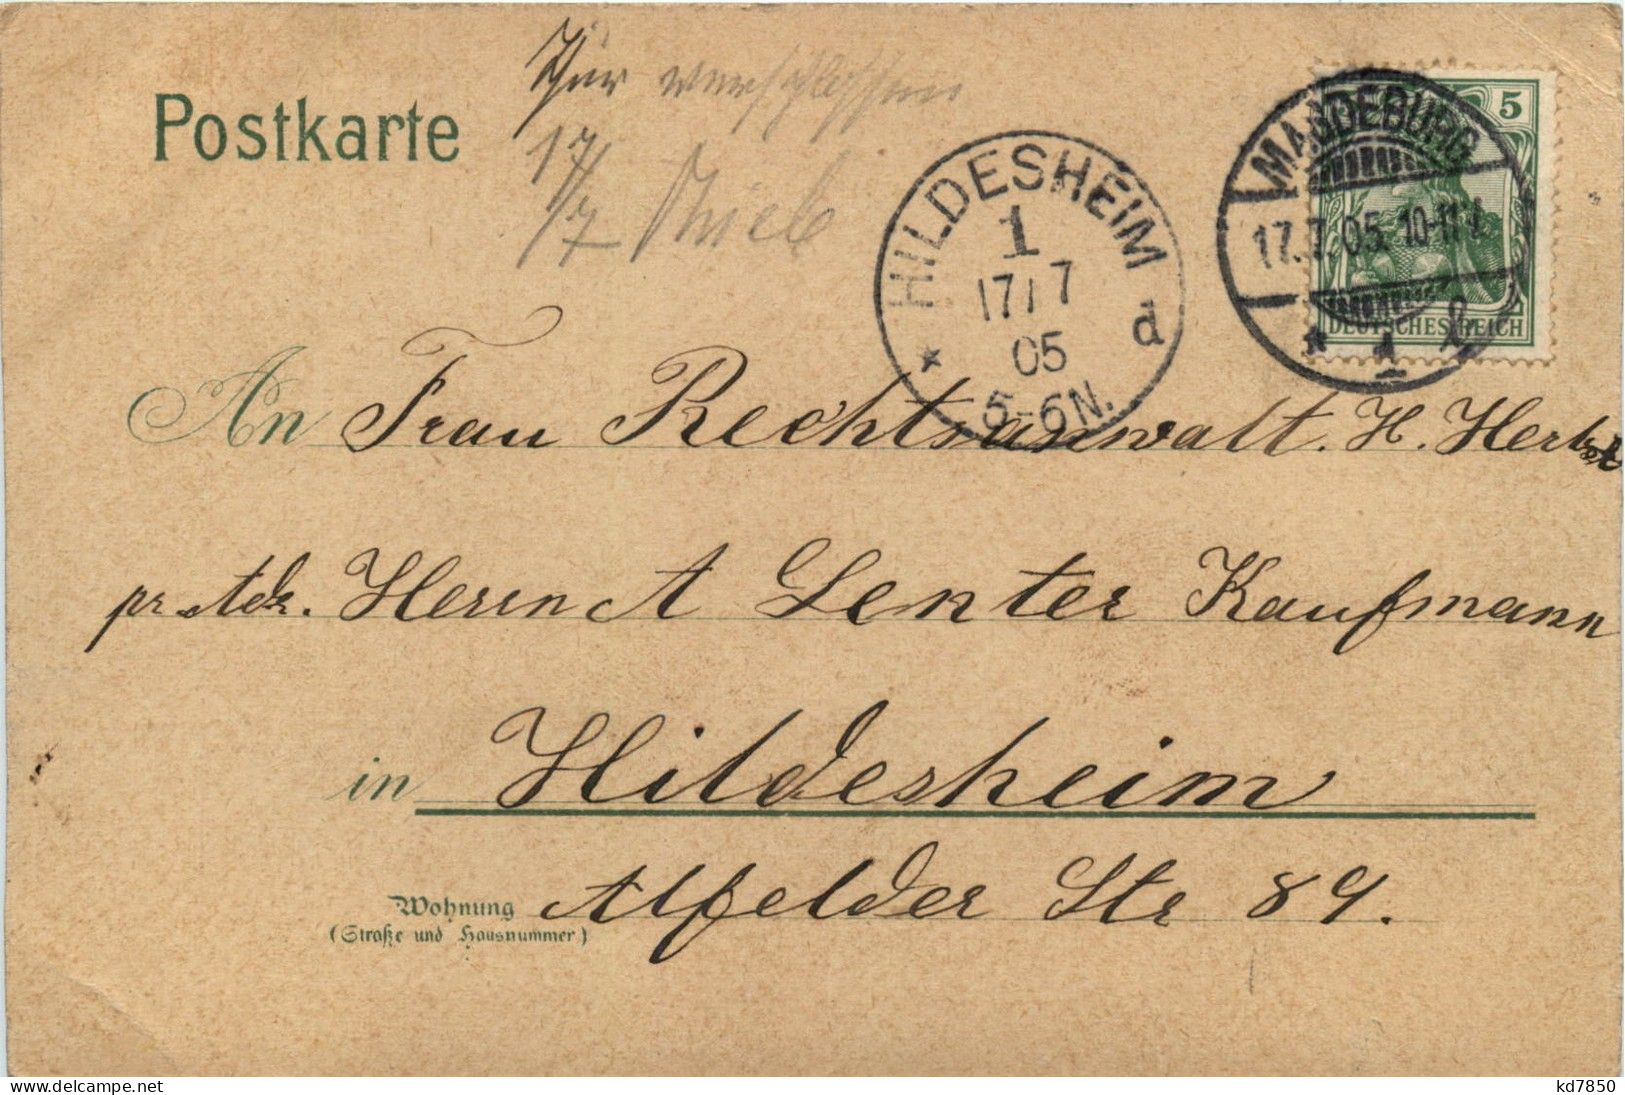 Thür verschlossen
17/7 Thiele
Postkarte
5
MAGDEBURG
17.7.05. 10-11V.
* 1 b
DEUTSCHES REICH
HILDESHEIM
1
17/7
05
* d
5-6N.
An Frau Rechtsanwalt. H. Herbst
pr. Adr. Herrn A Lenter Kaufmann
in Hildesheim
Wohnung Alfelder Str 89.
(Straße und Hausnummer)
kd7850